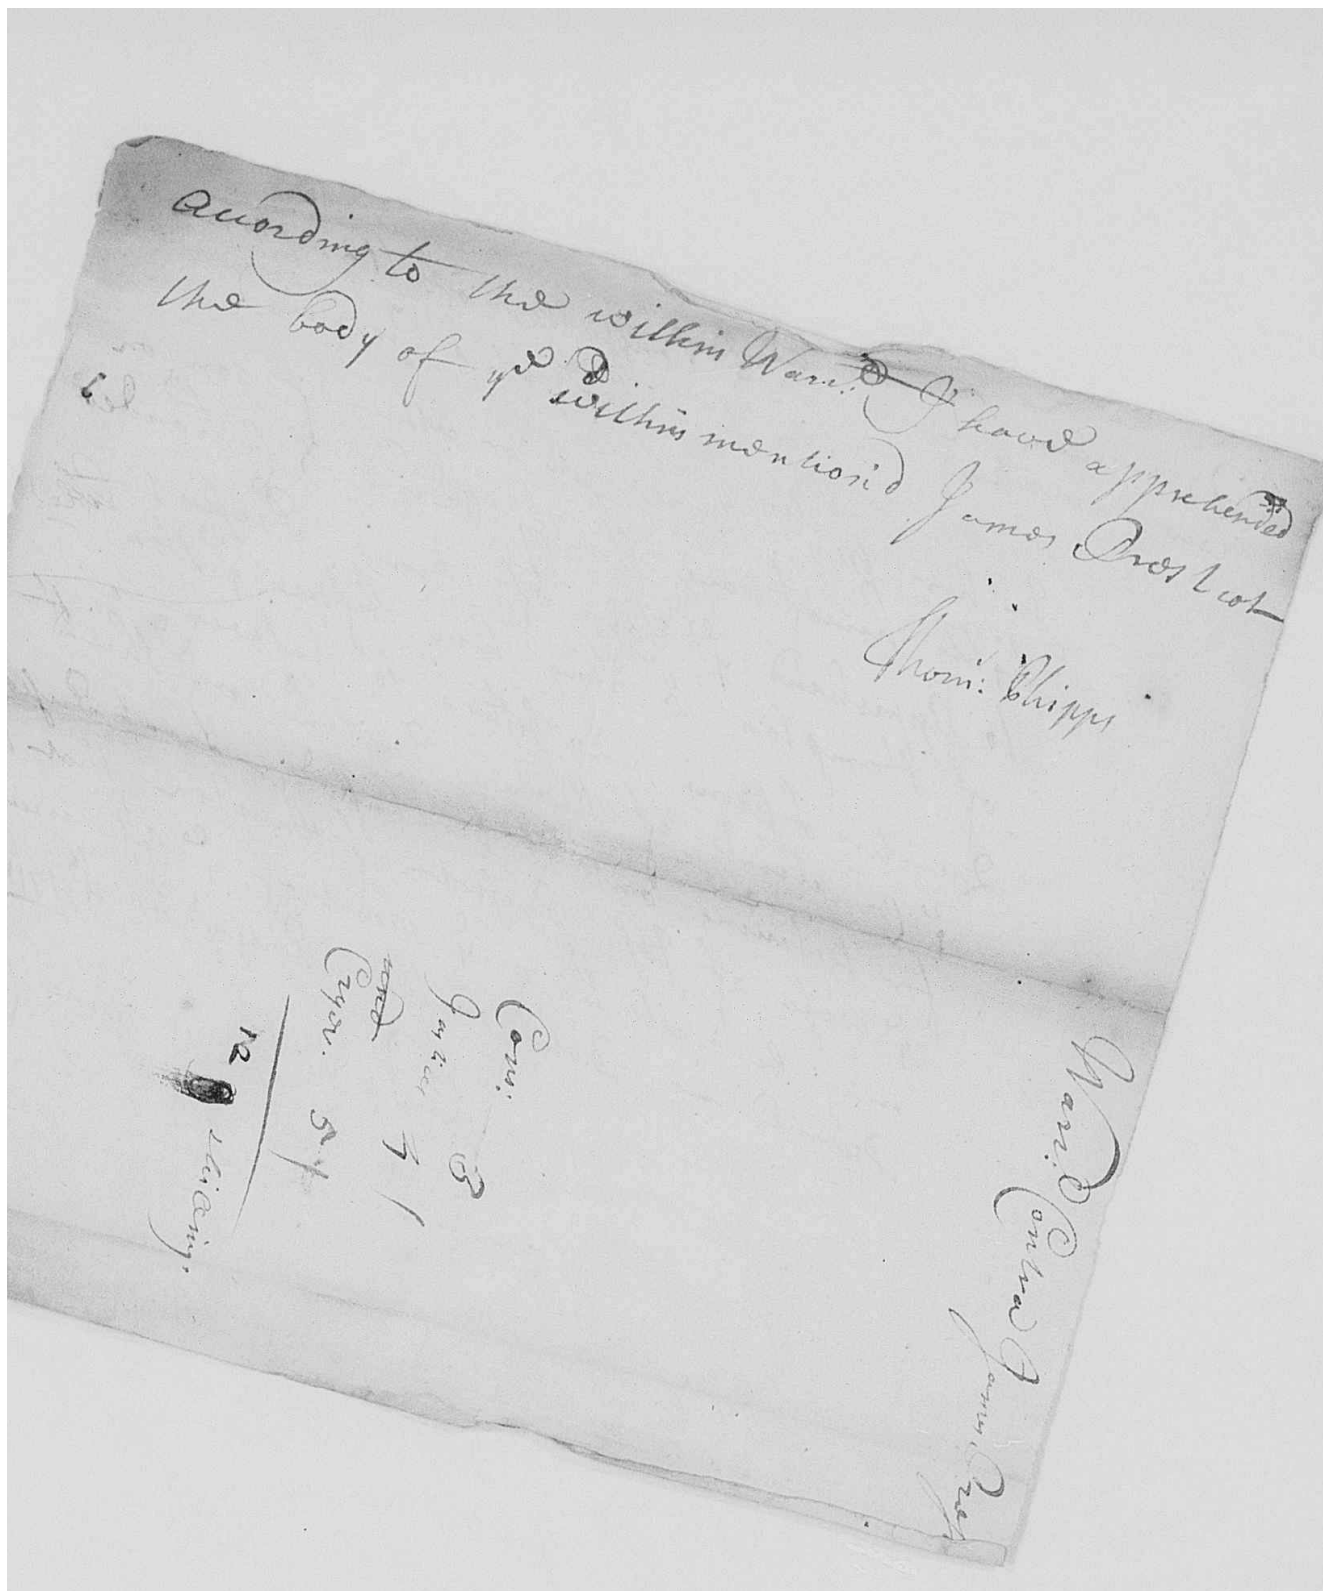 According to the within Warr:t I have apprehended
the body of ye within mention'd James Prescot
Thom: Phipps
Warr:t Contra James Pres
Con: 3
Justice
Cryer: 5
12 shilings